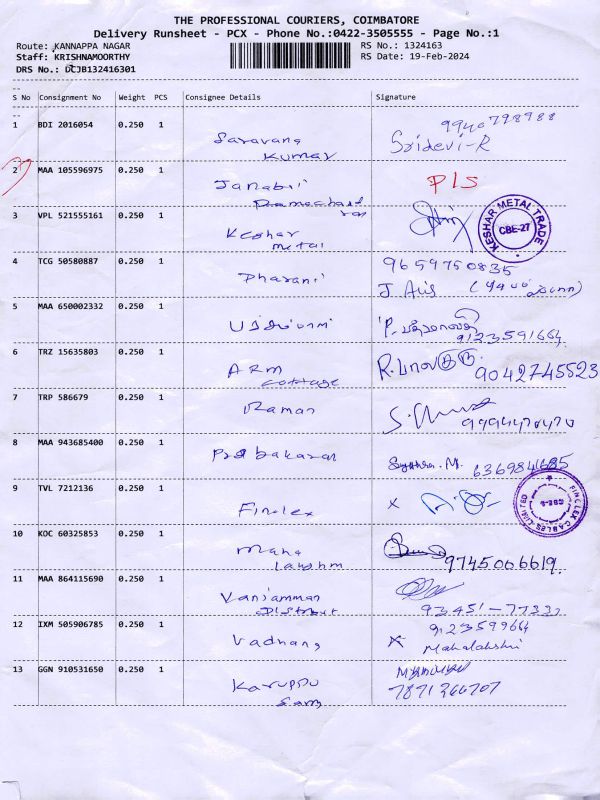 THE PROFESSIONAL COURIERS, COIMBATORE
Delivery Runsheet - PCX - Phone No.:0422-3505555 - Page No.:1
Route: KANNAPPA NAGAR RS No.: 1324163
Staff: KRISHNAMOORTHY RS Date: 19-Feb-2024
DRS No.: DCJB132416301
S No Consignment No Weight PCS Consignee Details Signature
1 BDI 2016054 0.250 1 9940798988
Saravana Sridevi-R
Kumar
2 MAA 105596975 0.250 1 PIS
Janabri
3 VPL 521555161 0.250 1
Keshar
metal
KESHAR METAL TRADE
CBE-27
4 TCG 50580887 0.250 1 9659750835
Dharani
5 MAA 650002332 0.250 1
9123591664
6 TRZ 15635803 0.250 1
ARM R. பாலகுரு
cottage 9042745523
7 TRP 586679 0.250 1
Raman
8 MAA 943685400 0.250 1
Prabakaran
9 TVL 7212136 0.250 1
Finolex
FINOLEX CABLES LIMITED
10 KOC 60325853 0.250 1
Maha 9745006619
Lakshm
11 MAA 864115690 0.250 1
Vaniamman 93451-77332
12 IXM 505906785 0.250 1 9123599664
Mahalakshmi
13 GGN 910531650 0.250 1
Karuppu 7871266707
Samy